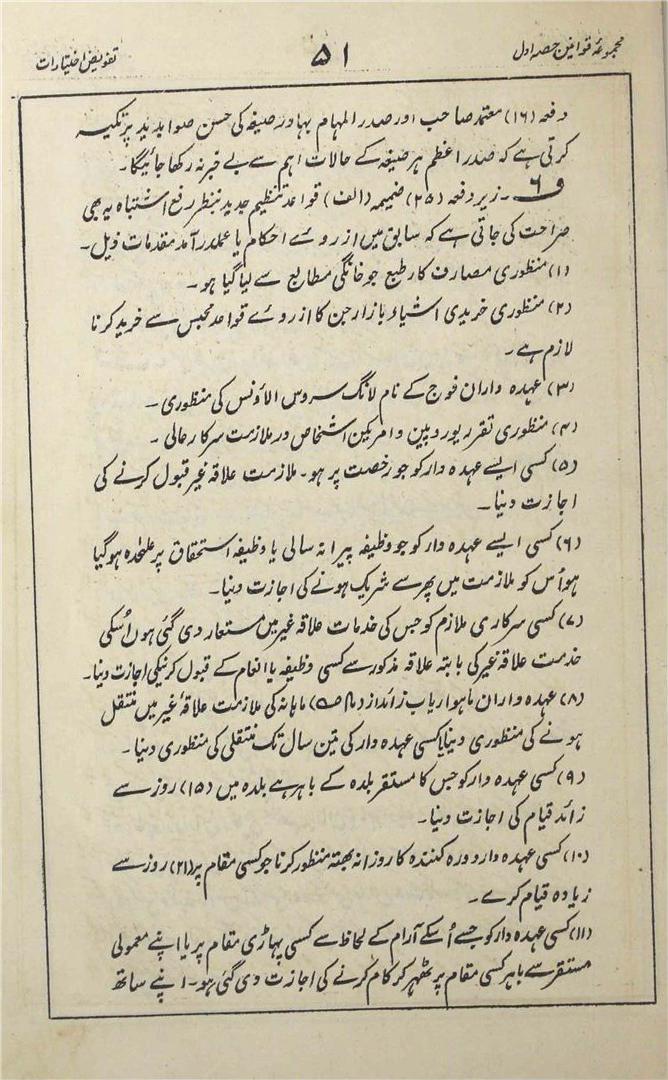 مجموعۂ قوانین حصہ اول
۵۱
تفویض اختیارات
دفعہ (۱۶) معتمد صاحب اور صدر المہام بہادر صیغہ کی حسن صوابدید پر تکیہ
کرتی ہے کہ صدر اعظم ہر صیغہ کے حالات اہم سے بے خبر نہ رکھا جائیگا۔
ف۶۔ زیر دفعہ (۲۵) ضمیمہ (الف) قواعد تنظیم جدید بنظر رفع اشتباہ یہ بھی
صراحت کی جاتی ہے کہ سابق میں از روئے احکام یا عملدر آمد مقدمات ذیل۔
(۱) منظوری مصارف کار طبع جو خانگی مطابع سے لیا گیا ہو۔
(۲) منظوری خریدی اشیاء بازار جن کا از روئے قواعد محبس سے خرید کرنا
لازم ہے۔
(۳) عہدہ داران فوج کے نام لانگ سروس الاؤنس کی منظوری۔
(۴) منظوری تقرر یوروپین و امریکین اشخاص در ملازمت سرکار عالی۔
(۵) کسی ایسے عہدہ دار کو جو رخصت پر ہو۔ ملازمت علاقہ غیر قبول کرنے کی
اجازت دینا۔
(۶) کسی ایسے عہدہ دار کو جو وظیفہ پیرانہ سالی یا وظیفہ استحقاق پر علٰحدہ ہوگیا
ہو اُس کو ملازمت میں پھر سے شریک ہونے کی اجازت دینا۔
(۷) کسی سرکاری ملازم کو جس کی خدمات علاقہ غیر میں مستعار دی گئی ہوں اُسکی
خدمت علاقہ غیر کی بابتہ علاقہ مذکور سے کسی وظیفہ یا انعام کے قبول کرنیکی اجازت دینا۔
(۸) عہدہ داران ماہوار یاب زائد از ماہانہ کی ملازمت علاقۂ غیر میں منتقل
ہونے کی منظوری دینا یا کسی عہدہ دار کی تین سال تک منتقلی کی منظوری دینا۔
(۹) کسی عہدہ دار کو جس کا مستقر بلدہ کے باہر ہے بلدہ میں (۱۵) روز سے
زائد قیام کی اجازت دینا۔
(۱۰) کسی عہدہ دار دورہ کنندہ کا روزانہ بھتہ منظور کرنا جو کسی مقام پر (۲۱) روز سے
زیادہ قیام کرے۔
(۱۱) کسی عہدہ دار کو جسے اُسکے آرام کے لحاظ سے کسی پہاڑی مقام پر یا اپنے معمولی
مستقر سے باہر کسی مقام پر ٹھہر کر کام کرنے کی اجازت دی گئی ہو۔ اپنے ساتھ